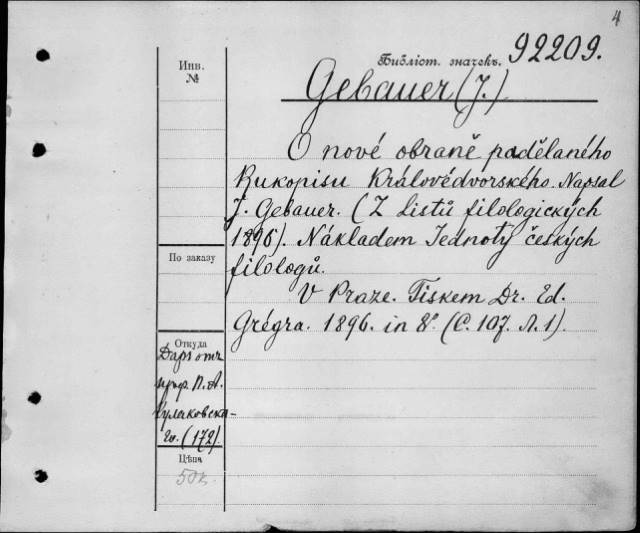 4
Библіот. значекъ.
92209.
Инв.
№
Gebauer (J.)
O nové obraně padělaného
Rukopisu Královédvorského. Napsal
J. Gebauer. (Z Listů filologických
1896). Nákladem Jednoty českých
filologů.
V Praze. Tiskem Dr. Ed.
Grégra. 1896. in 8º. (С. 107. Л. 1).
По заказу
Откуда
Даръ отъ
проф. П. А.
Кулаковска-
го. (172).
Цѣна
50к.